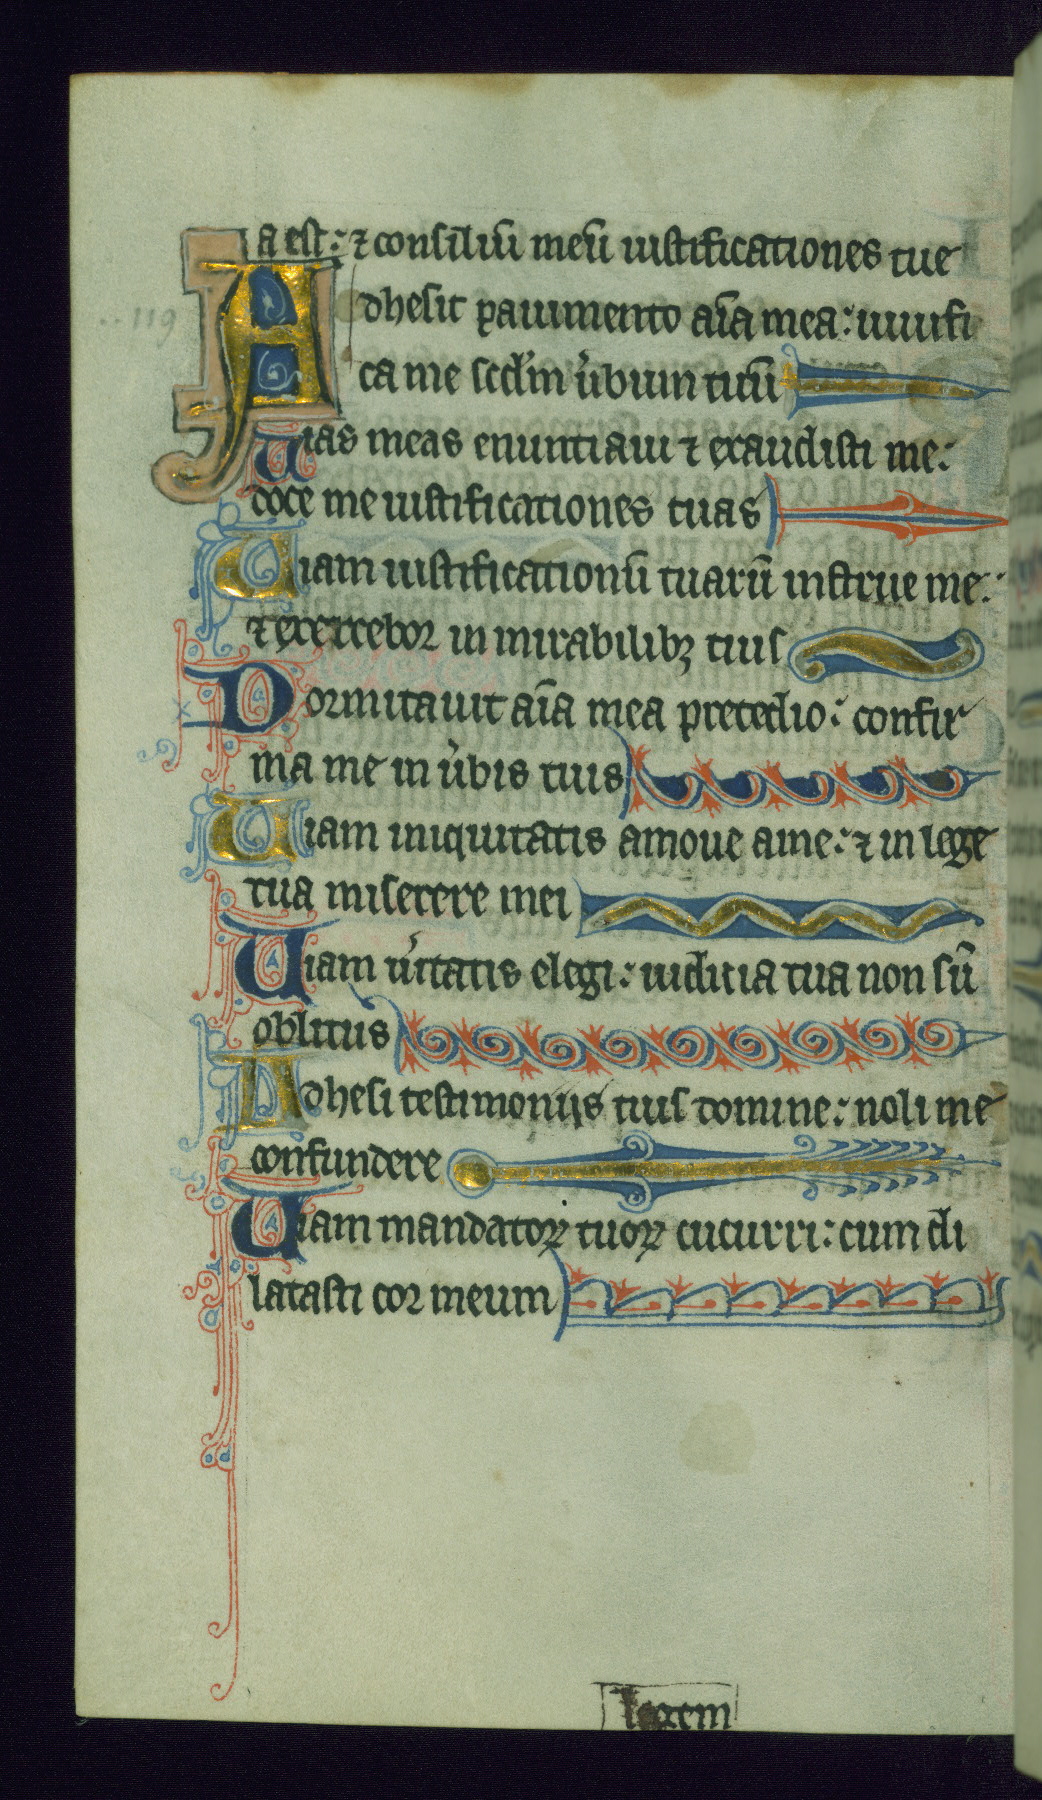 a est: ⁊ consiliū meū iustificationes tue
Adhesit pauimento aīa mea: uiuifi
ca me scd'm u̓bum tuū
Uias meas enuntiaui ⁊ exaudisti me:
doce me iustificationes tuas
Uiam iustificationū tuarū instrue me:
⁊ exercebor in mirabilibꝫ tuis
Dormitauit aīa mea pretedio: confir
ma me in u̓bis tuis
Uiam iniquitatis amoue ame: ⁊ in lege
tua miserere mei
Uiam u̓itatis elegi: iudicia tua non sū
oblitus
Adhesi testimoniis tuis domine: noli me
confundere
Uiam mandatoꝝ tuoꝝ cucurri: cum di
latasti cor meum
legem
119